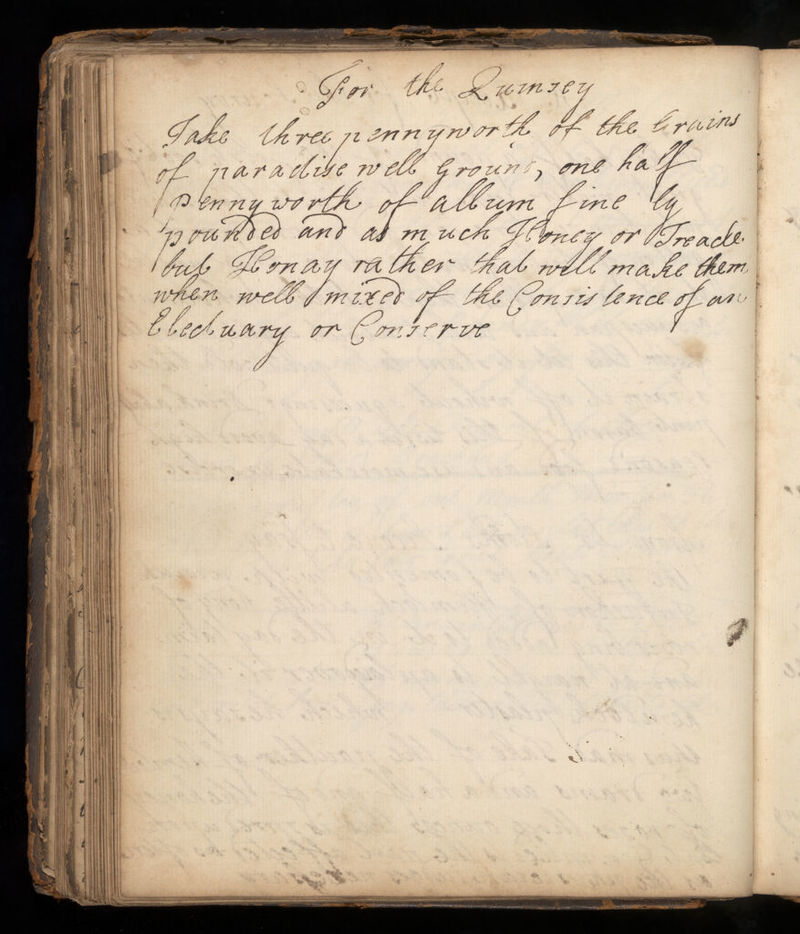 For the Quinsey
Take three pennyworth of the Grains
of paradise well Ground, one half
pennyworth of album fine ly
pounded and as much Honey or Treacle
but Honay rather that will make them
when well mixed of the Consistence of an
Electuary or Conserve